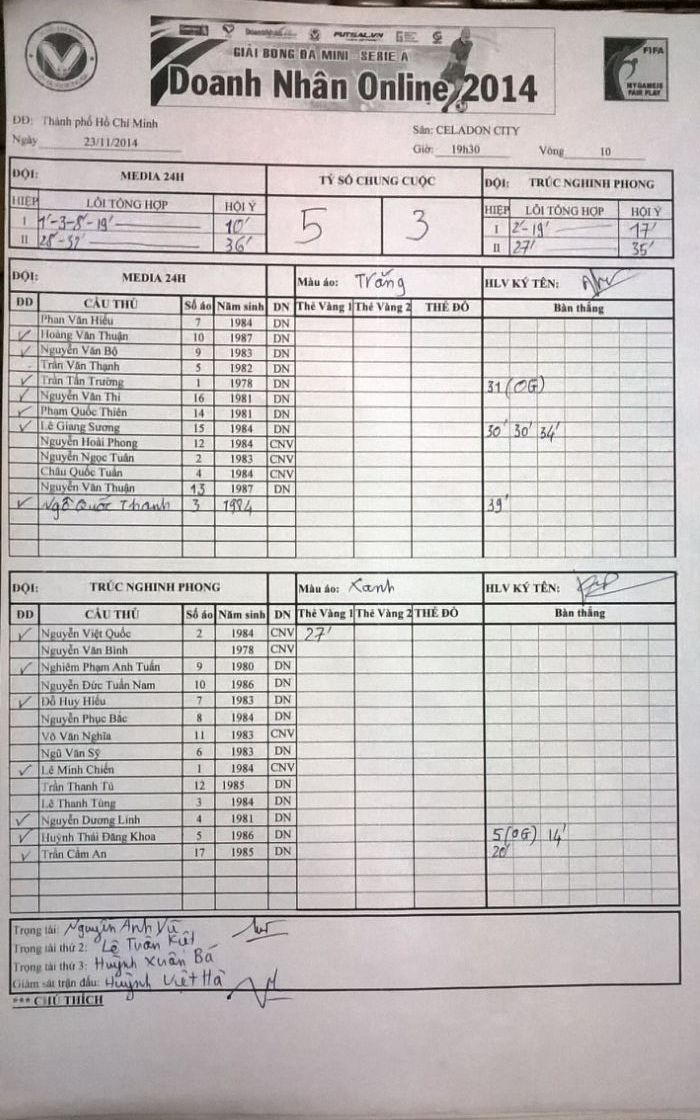 FUTSAL.VN
GIẢI BÓNG ĐÁ MINI - SERIE A
Doanh Nhân Online 2014
FIFA
MY GAME IS
FAIR PLAY
DĐ: Thành phố Hồ Chí Minh
Sân: CELADON CITY
Ngày 23/11/2014
Giờ: 19h30 Vòng 10
ĐỘI: MEDIA 24H TỶ SỐ CHUNG CUỘC ĐỘI: TRÚC NGHINH PHONG
HIỆP LỖI TỔNG HỢP HỘI Ý 5 3 HIỆP LỖI TỔNG HỢP HỘI Ý
I 1'-3-8'-19' 10' I 2'-19' 17'
II 28'-32' 36' II 27' 35'
ĐỘI: MEDIA 24H Màu áo: Trắng HLV KÝ TÊN:
ĐD CẦU THỦ Số áo Năm sinh DN Thẻ Vàng 1 Thẻ Vàng 2 THẺ ĐỎ Bàn thắng
Phan Văn Hiếu 7 1984 DN
✓ Hoàng Văn Thuận 10 1987 DN
✓ Nguyễn Văn Bộ 9 1983 DN
Trần Văn Thạnh 5 1982 DN
✓ Trần Tấn Trường 1 1978 DN 31 (OG)
✓ Nguyễn Văn Thi 16 1981 DN
✓ Phạm Quốc Thiên 14 1981 DN
✓ Lê Giang Sương 15 1984 DN 30' 30' 34'
Nguyễn Hoài Phong 12 1984 CNV
Nguyễn Ngọc Tuân 2 1983 CNV
Châu Quốc Tuấn 4 1984 CNV
Nguyễn Văn Thuận 13 1987 DN
✓ Ngô Quốc Thanh 3 1984 39'
ĐỘI: TRÚC NGHINH PHONG Màu áo: Xanh HLV KÝ TÊN:
ĐD CẦU THỦ Số áo Năm sinh DN Thẻ Vàng 1 Thẻ Vàng 2 THẺ ĐỎ Bàn thắng
✓ Nguyễn Việt Quốc 2 1984 CNV 27'
Nguyễn Văn Bình 1978 CNV
✓ Nghiêm Phạm Anh Tuấn 9 1980 DN
Nguyễn Đức Tuấn Nam 10 1986 DN
✓ Đỗ Huy Hiếu 7 1983 DN
Nguyễn Phục Bắc 8 1984 DN
Võ Văn Nghĩa 11 1983 CNV
Ngũ Văn Sỹ 6 1983 DN
✓ Lê Minh Chiến 1 1984 CNV
Trần Thanh Tú 12 1985 DN
Lê Thanh Tùng 3 1984 DN
✓ Nguyễn Dương Linh 4 1981 DN
✓ Huỳnh Thái Đăng Khoa 5 1986 DN 5 (OG) 14'
✓ Trần Cẩm An 17 1985 DN 20'
Trọng tài: Nguyễn Anh Vũ
Trọng tài thứ 2: Lê Tuấn Kiệt
Trọng tài thứ 3: Huỳnh Xuân Bá
Giám sát trận đấu: Huỳnh Việt Hà
*** CHÚ THÍCH